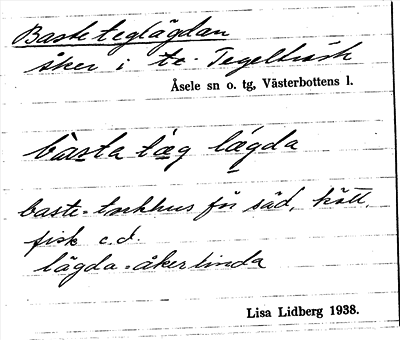 Basteteglägdan
åker i te. Tegelträsk
Åsele sn o. tg, Västerbottens l.
bàsta tæg lǽgda
baste = torkhus för säd, kött,
fisk e.d.
lägda = åkerlinda
Lisa Lidberg 1938.